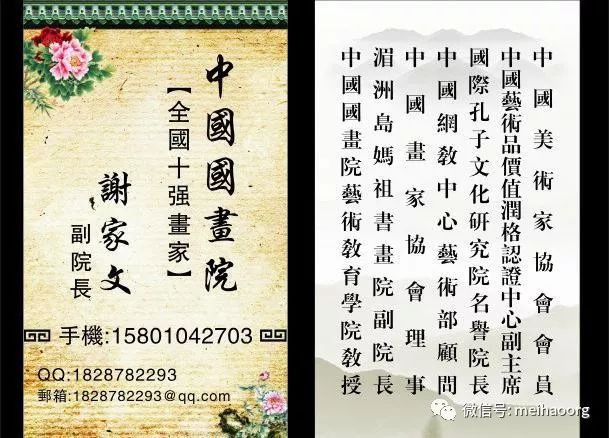 中國國畫院
【全國十强畫家】
謝家文
副院長
手機:15801042703
QQ:1828782293
郵箱:1828782293@qq.com
中國美術家協會會員
中國藝術品價值潤格認證中心副主席
國際孔子文化研究院名譽院長
中國網教中心藝術部顧問
中國畫家協會理事
湄洲島媽祖書畫院副院長
中國國畫院藝術教育學院教授
微信号: meihaoorg